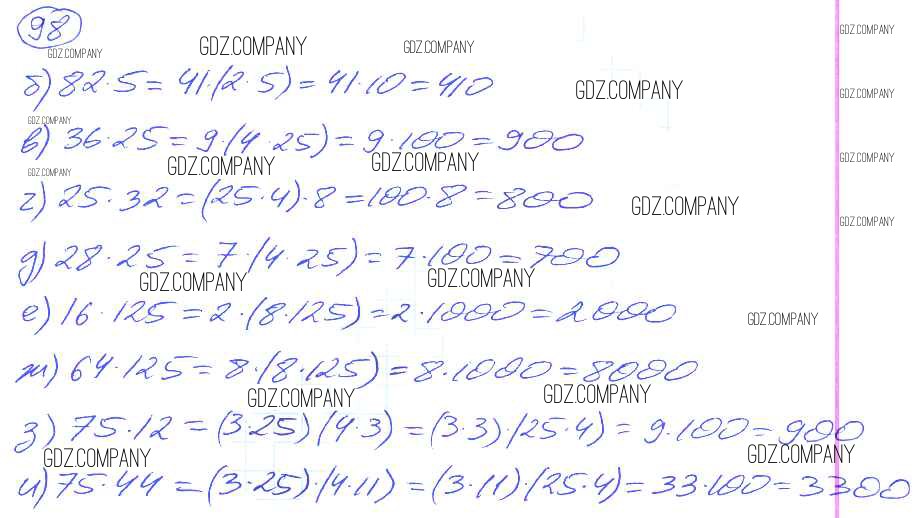 98
GDZ.COMPANY GDZ.COMPANY GDZ.COMPANY GDZ.COMPANY
б) 82·5 = 41·(2·5) = 41·10 = 410
GDZ.COMPANY GDZ.COMPANY
GDZ.COMPANY
в) 36·25 = 9·(4·25) = 9·100 = 900
GDZ.COMPANY GDZ.COMPANY GDZ.COMPANY GDZ.COMPANY
г) 25·32 = (25·4)·8 = 100·8 = 800
GDZ.COMPANY GDZ.COMPANY
д) 28·25 = 7·(4·25) = 7·100 = 700
GDZ.COMPANY GDZ.COMPANY
е) 16·125 = 2·(8·125) = 2·1000 = 2000
GDZ.COMPANY
ж) 64·125 = 8·(8·125) = 8·1000 = 8000
GDZ.COMPANY GDZ.COMPANY
з) 75·12 = (3·25)(4·3) = (3·3)·(25·4) = 9·100 = 900
GDZ.COMPANY GDZ.COMPANY
и) 75·44 = (3·25)·(4·11) = (3·11)·(25·4) = 33·100 = 3300